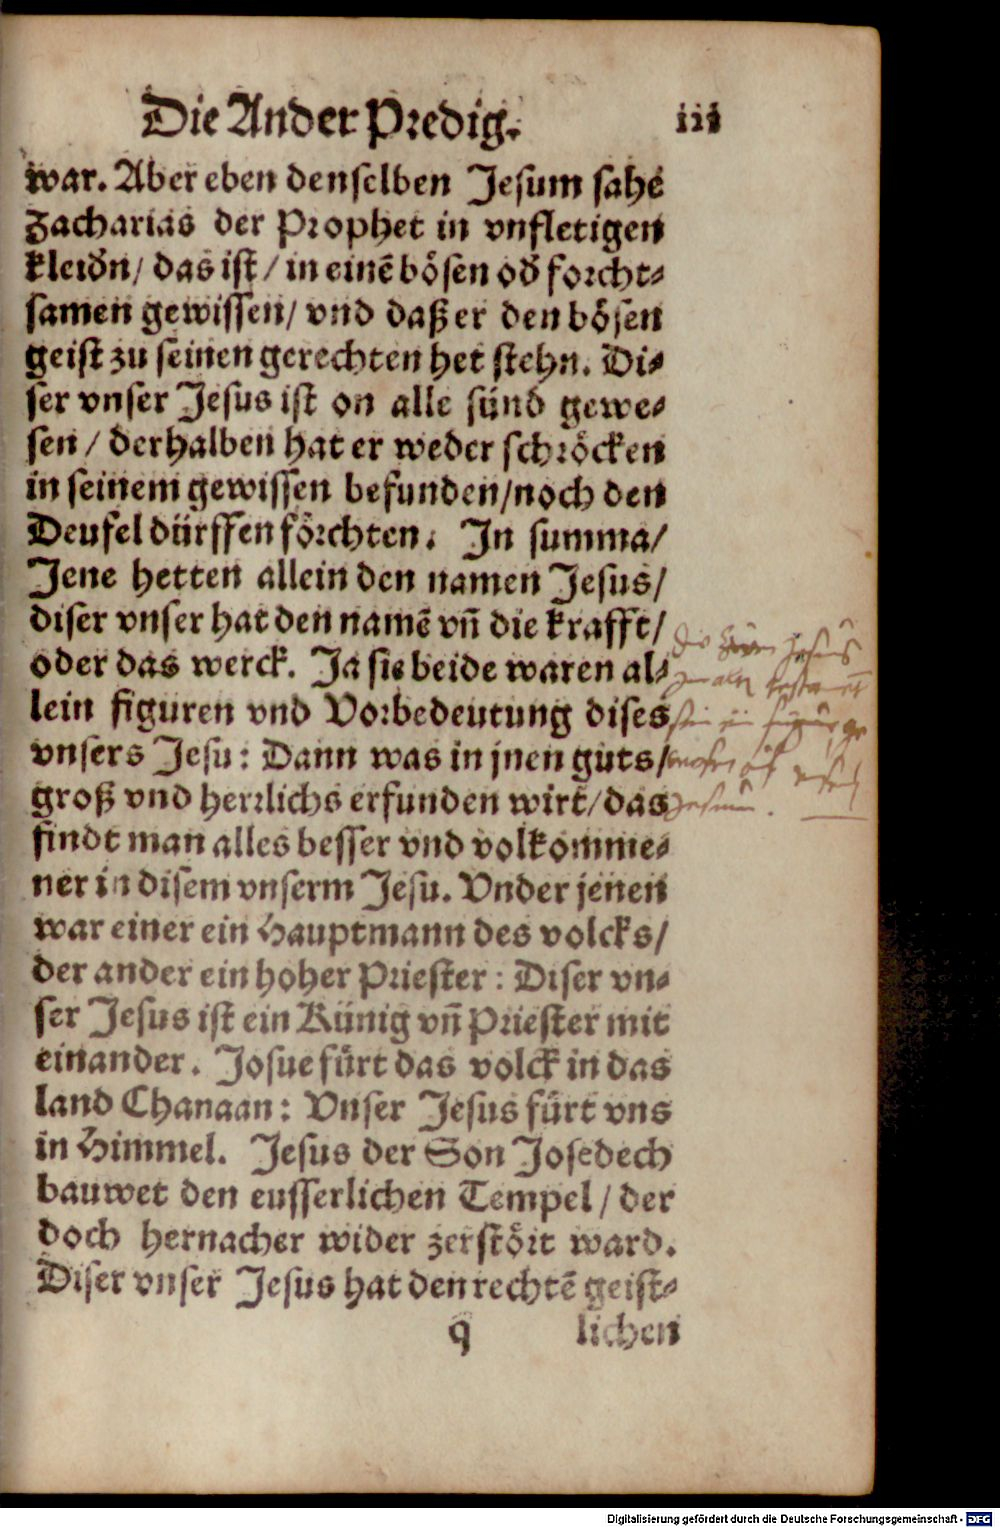 Die Ander Predig. iii
war. Aber eben denselben Jesum sahe
Zacharias der Prophet in vnfletigen
kleidn/ das ist/ in einē bösen od forcht-
samen gewissen/ vnd daß er den bösen
geist zu seinen gerechten het stehn. Di-
ser vnser Jesus ist on alle sünd gewe-
sen/ derhalben hat er weder schröcken
in seinem gewissen befunden/ noch den
Deufel dürffen förchten. In summa/
Jene hetten allein den namen Jesus/
diser vnser hat den namē vñ die krafft/
oder das werck. Ja sie beide waren al-
lein figuren vnd Vorbedeutung dises
vnsers Jesu: Dann was in jnen guts/
groß vnd herrlichs erfunden wirt/ das
findt man alles besser vnd volkomme-
ner in disem vnserm Jesu. Vnder jenen
war einer ein Hauptmann des volcks/
der ander ein hoher Priester: Diser vn-
ser Jesus ist ein Künig vñ Priester mit
einander. Josue fürt das volck in das
land Chanaan: Vnser Jesus fürt vns
in Himmel. Jesus der Son Josedech
bauwet den eusserlichen Tempel/ der
doch hernacher wider zerstört ward.
Diser vnser Jesus hat den rechtē geist-
q lichen
Digitalisierung gefördert durch die Deutsche Forschungsgemeinschaft - DFG